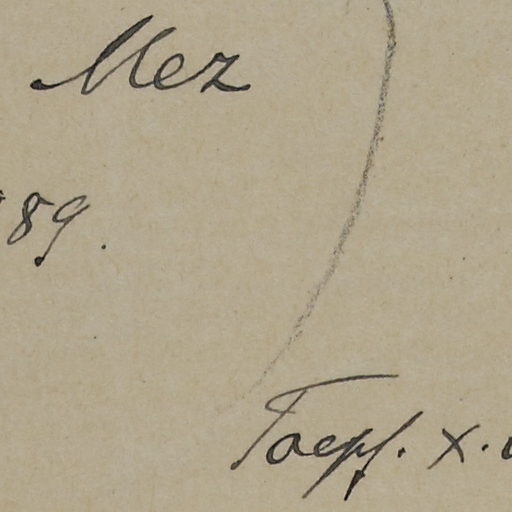 Mez
89.
Toepf. X.